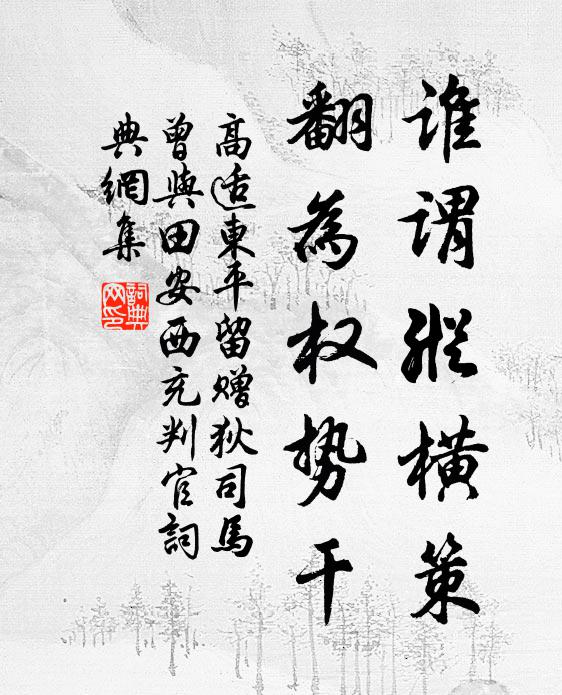 谁谓纵横策
翻为权势干
高适東平留赠狄司馬
曾與田安西充判官詞
典網集
詞典
网印